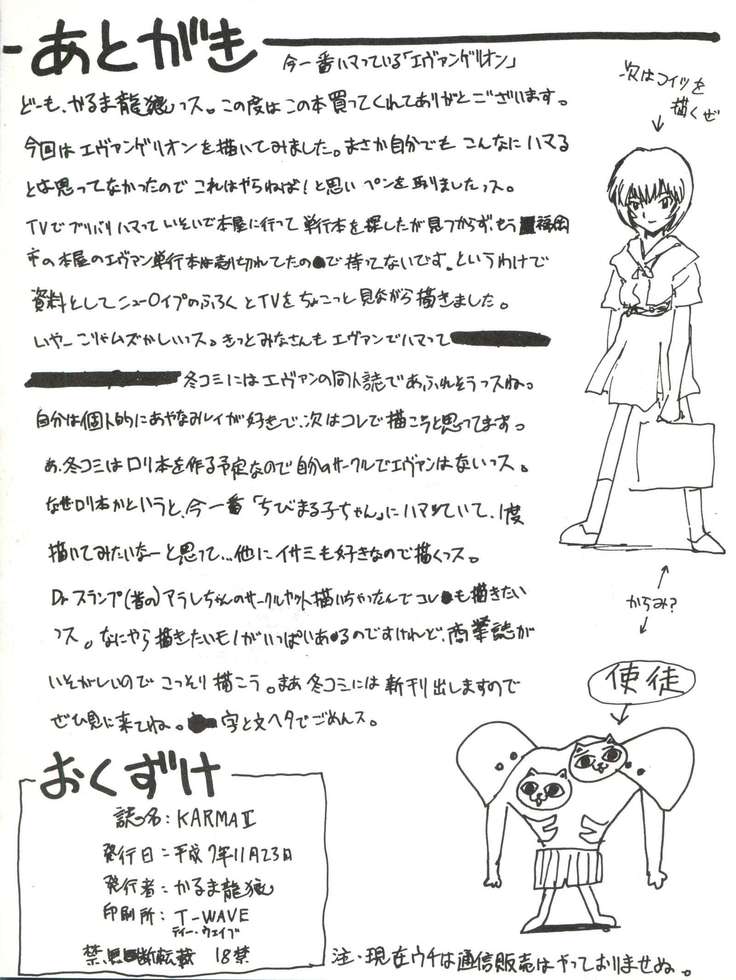 あとがき
今一番ハマっている「エヴァンゲリオン」
どーも、かるま龍狼っス。この度はこの本買ってくれてありがとうございます。
今回はエヴァンゲリオンを描いてみました。まさか自分でもこんなにハマる
とは思ってなかったのでこれはやらねば!と思いペンを取りましたっス。
TVでバリバリハマっていそいで本屋に行って単行本を探したが見つからず、もう福岡
市の本屋のエヴァン単行本は売り切れてたので持ってないです。というわけで
資料としてニュータイプのふろくとTVをちょこっと見ながら描きました。
いやーごっつムズかしいっス。きっとみなさんもエヴァンでハマって
冬コミにはエヴァンの同人誌であふれそうっスね。
自分は個人的にあやなみルイが好きで、次はコレで描こうと思ってます。
あ、冬コミはロリ本を作る予定なので自分のサークルでエヴァンはないっス。
なぜロリ本かというと、今一番「ちびまる子ちゃん」にハマっていて、1度
描いてみたいなーと思って...他にイサミも好きなので描くっス。
Drスランプ(昔の)アラレちゃんのサークルカット描いちゃったんでコレも描きたい
っス。なにやら描きたいモノがいっぱいあるのですけれど、商業誌が
いそがしいのでこっそり描こう。まあ冬コミには新刊出しますので
ぜひ見に来てね。字と文ヘタでごめんス。
次はコイツを
描くぜ
からみ?
使徒
おくずけ
誌名:KARMAⅡ
発行日=平成7年11月23日
発行者=かるま龍狼
印刷所:T-WAVE
ティー・ウェイブ
禁断転載 18禁
注・現在ウチは通信販売はやっておりませぬ。